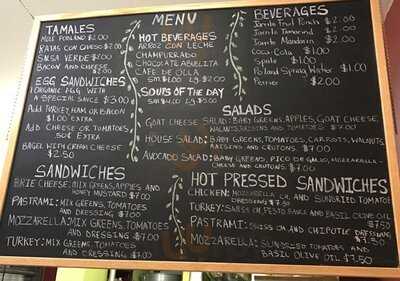 MENU
TAMALES
MOLE POBLANO $2.00
RAJAS CON QUESO $2.00
SALSA VERDE $2.00
BACON AND CHEESE
$2.00
EGG SANDWICHES
1 ORGANIC EGG WITH
A SPECIAL SAUCE $3.00
ADD TURKEY, HAM OR BACON
$1.00 EXTRA
ADD CHEESE OR TOMATOES
50¢ EXTRA
BAGEL WITH CREAM CHEESE
$2.50
HOT BEVERAGES
ARROZ CON LECHE
CHAMPURRADO
CHOCOLATE ABUELITA
CAFE DE OLLA
SM $1.00 LG $2.00
SOUPS OF THE DAY
SM $4.00 LG $5.00
BEVERAGES
Jarrito Fruit Punch $2.00
Jarrito Tamarind $2.00
Jarrito Mandarin $2.00
Coca-Cola $1.00
Sprite $1.00
Poland Spring Water $1.00
Perrier $2.00
SALADS
GOAT CHEESE SALAD: BABY GREENS, APPLES, GOAT CHEESE,
WALNUTS, RAISINS AND TOMATOES $7.00
HOUSE SALAD: BABY GREENS, TOMATOES, CARROTS, WALNUTS,
RAISINS AND CROUTONS $7.00
AVOCADO SALAD: BABY GREENS, PICO DE GALLO, MOZZARELLA
CHEESE AND CROUTONS $7.00
SANDWICHES
BRIE CHEESE: MIX GREENS, APPLES AND
HONEY MUSTARD $7.00
PASTRAMI: MIX GREENS, TOMATOES
AND DRESSING $7.00
MOZZARELLA: MIX GREENS, TOMATOES
AND DRESSING $7.00
TURKEY: MIX GREENS, TOMATOES
AND DRESSING $7.00
HOT PRESSED SANDWICHES
CHICKEN: MOZZARELLA CH. AND SUNDRIED TOMATO
DRESSING $7.50
TURKEY: SWISS CH, PESTO SAUCE AND BASIL OLIVE OIL
$7.50
PASTRAMI: SWISS CH. AND CHIPOTLE DRESSING
$7.50
MOZZARELLA: SUNDRIED TOMATOES AND
BASIL OLIVE OIL $7.50